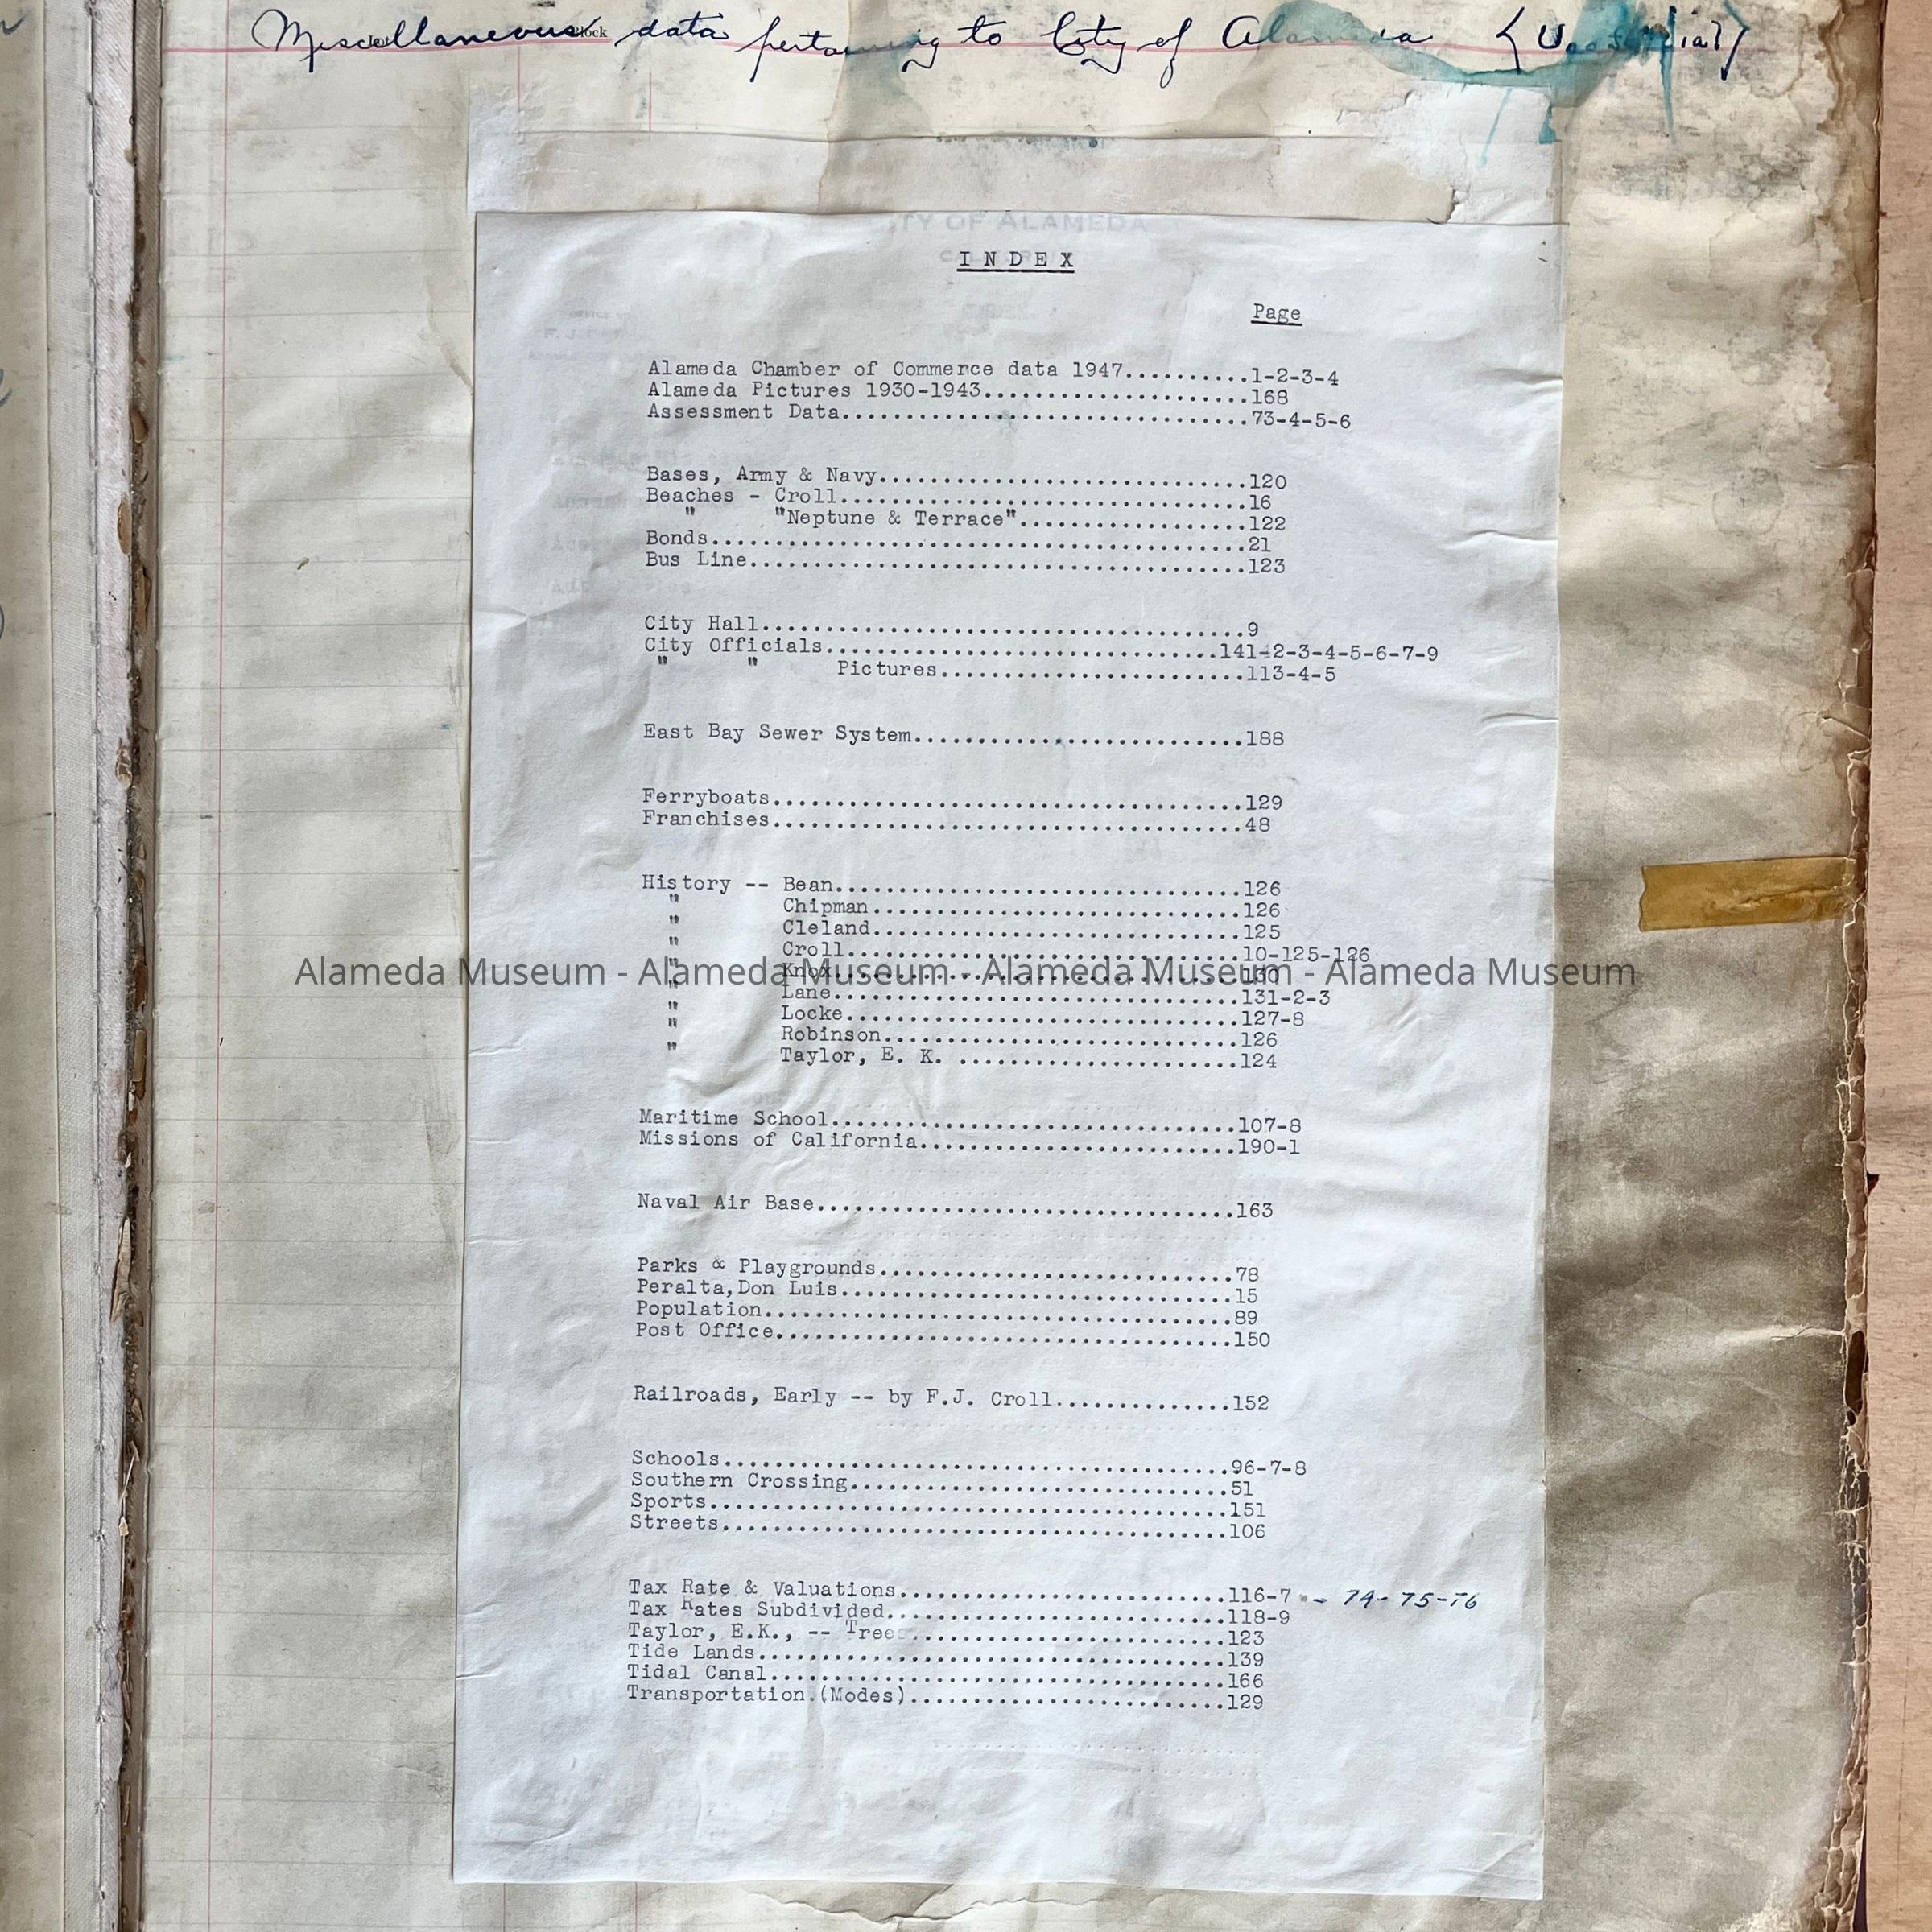 Miscellaneous data pertaining to City of Alameda (Unofficial)
ITY OF ALAMEDA
INDEX
Page
Alameda Chamber of Commerce data 1947..........1-2-3-4
Alameda Pictures 1930-1943.....................168
Assessment Data................................73-4-5-6
Bases, Army & Navy.............................120
Beaches - Croll................................16
" "Neptune & Terrace"..................122
Bonds..........................................21
Bus Line.......................................123
City Hall......................................9
City Officials...............................141-2-3-4-5-6-7-9
" " Pictures........................113-4-5
East Bay Sewer System..........................188
Ferryboats.....................................129
Franchises.....................................48
History -- Bean................................126
" Chipman.............................126
" Cleland.............................125
" Croll...............................10-125-126
Alameda Museum - Alameda Museum - Alameda Museum - Alameda Museum
" Knox................................130
" Lane................................131-2-3
" Locke...............................127-8
" Robinson............................126
" Taylor, E. K. ......................124
Maritime School................................107-8
Missions of California.........................190-1
Naval Air Base.................................163
Parks & Playgrounds............................78
Peralta,Don Luis...............................15
Population.....................................89
Post Office....................................150
Railroads, Early -- by F.J. Croll..............152
Schools........................................96-7-8
Southern Crossing..............................51
Sports.........................................151
Streets........................................106
Tax Rate & Valuations..........................116-7 - 74-75-76
Tax Rates Subdivided...........................118-9
Taylor, E.K., -- Trees.........................123
Tide Lands.....................................139
Tidal Canal....................................166
Transportation.(Modes).........................129